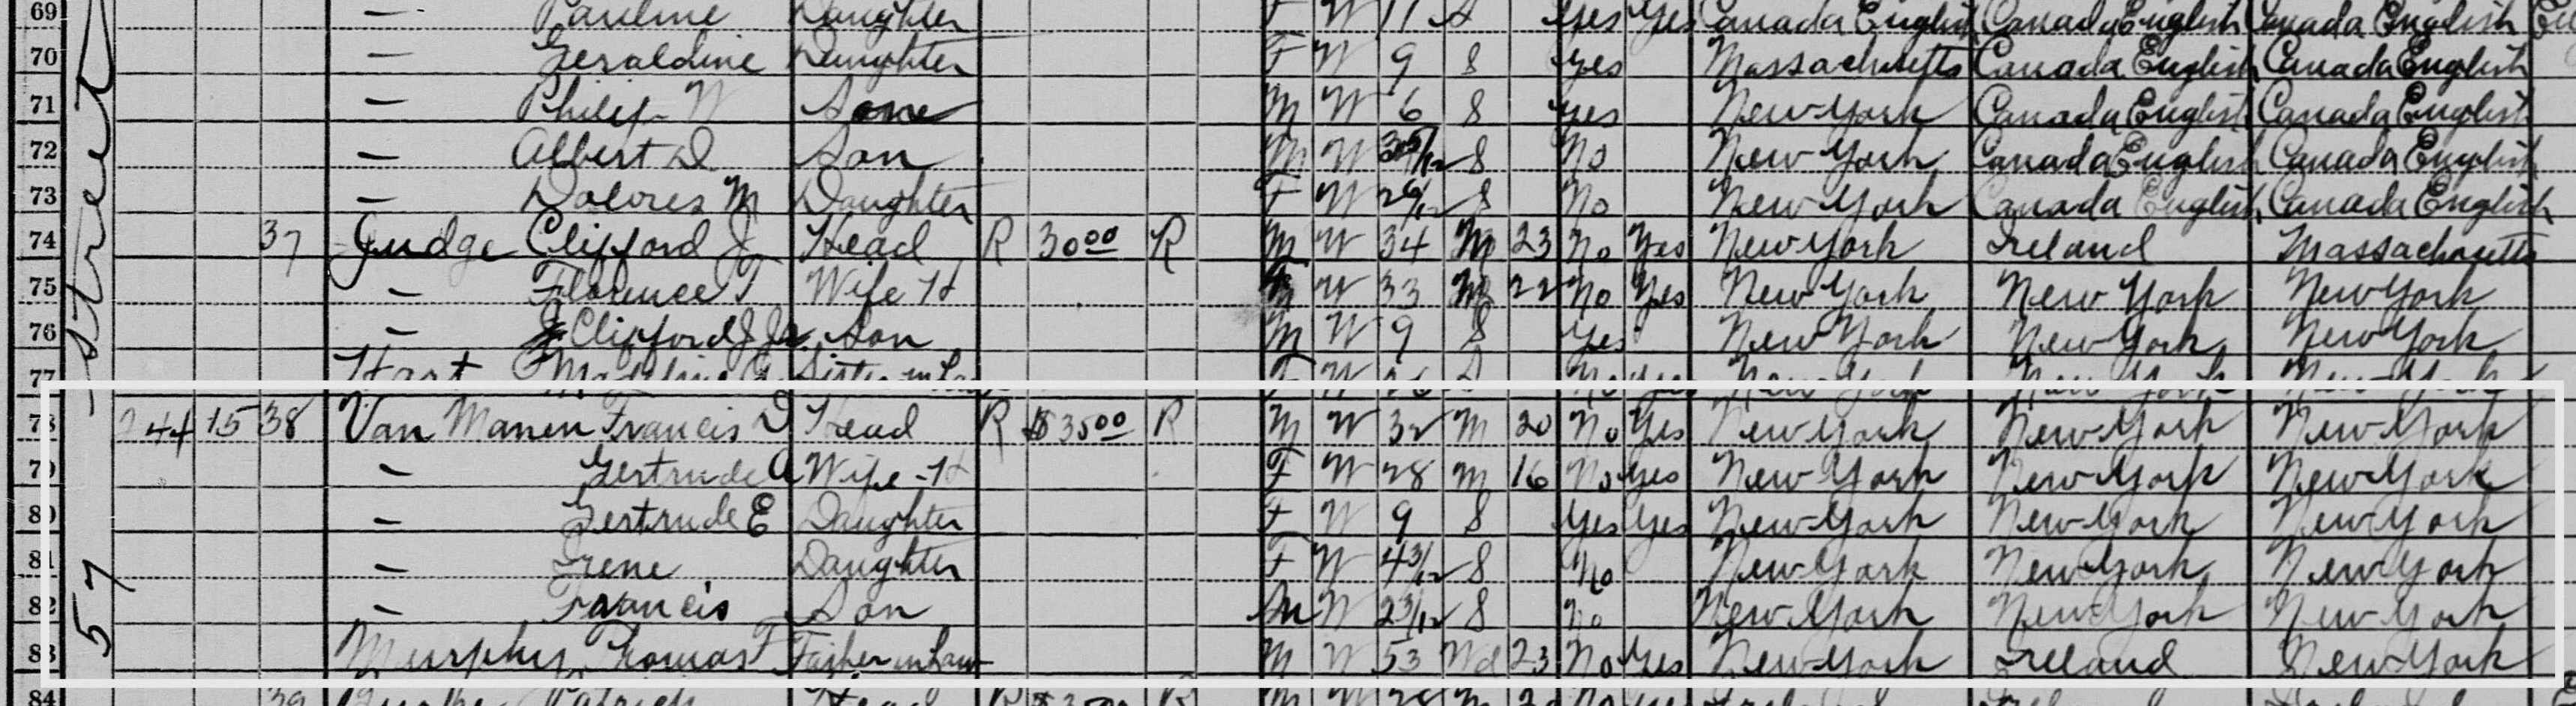 69 — Pauline Daughter F W 11 S Yes Yes Canada English Canada English Canada English
70 — Geraldine Daughter F W 9 S Yes Massachusetts Canada English Canada English
71 — Philip W Son M W 6 S Yes New York Canada English Canada English
72 — Albert D Son M W 3 5/12 S No New York Canada English Canada English
73 — Dolores M Daughter F W S No New York Canada English Canada English
74 37 Judge Clifford J Head R 30 00 R M W 34 M 23 No Yes New York Ireland Massachusetts
75 — Florence T Wife-H F W 33 M 22 No Yes New York New York New York
76 — Clifford J Jr. Son M W 9 S Yes New York New York New York
77 Hart Sister in Law F W S No Yes New York New York New York
78 244 15 38 Van Manen Francis D Head R $35 00 R M W 32 M 20 No Yes New York New York New York
79 — Gertrude A Wife-H F W 28 M 16 No Yes New York New York New York
80 — Gertrude E Daughter F W 9 S Yes Yes New York New York New York
81 — Irene Daughter F W 4 3/12 S No New York New York New York
82 — Francis Son M W 2 3/12 S No New York New York New York
83 Murphy Thomas F Father in Law M W 53 Wd 23 No Yes New York Ireland New York
84 39 Patrick Head R $35 00 R M
57 Street